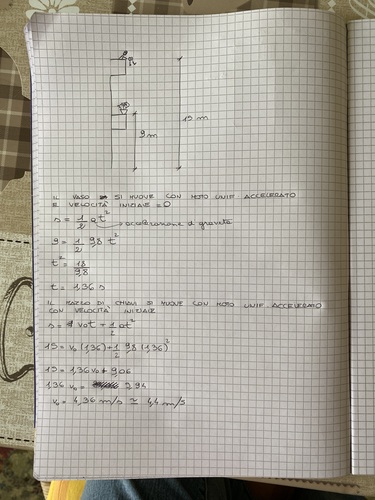 15 m
9 m
IL VASO SI MUOVE CON MOTO UNIF ACCELERATO
E VELOCITÀ INIZIALE = 0
s = 1/2 a t² → accelerazione di gravità
9 = 1/2 9,8 t²
t² = 18/9,8
t = 1,36 s
IL MAZZO DI CHIAVI SI MUOVE CON MOTO UNIF ACCELERATO
CON VELOCITÀ INIZIALE
s = v₀t + 1/2 at²
15 = v₀ (1,36) + 1/2 9,8 (1,36)²
15 = 1,36 v₀ + 9,06
1,36 v₀ = 5,94
v₀ = 4,36 m/s ≃ 4,4 m/s